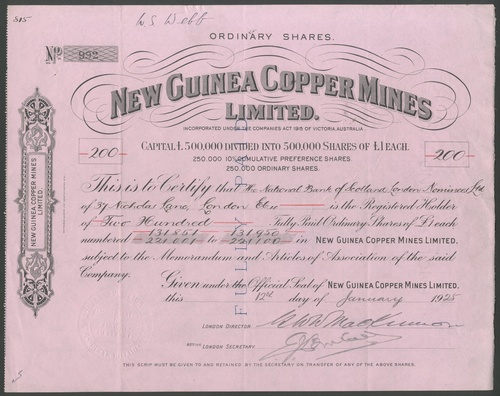 815
W S Webb
ORDINARY SHARES.
No 992
NEW GUINEA COPPER MINES
LIMITED.
INCORPORATED UNDER THE COMPANIES ACT 1915 OF VICTORIA, AUSTRALIA.
CAPITAL £500,000 DIVIDED INTO 500,000 SHARES OF £1 EACH.
250,000 10% CUMULATIVE PREFERENCE SHARES.
250,000 ORDINARY SHARES.
-200- -200-
This is to Certify that The National Bank of Scotland London Nominees Ltd
of 37 Nicholas Lane, London E.C.4 is the Registered Holder
of Two Hundred Fully Paid Ordinary Shares of £1 each
131851 131950
numbered 221001 to 221100 in NEW GUINEA COPPER MINES LIMITED,
subject to the Memorandum and Articles of Association of the said
Company.
Given under the Official Seal of NEW GUINEA COPPER MINES LIMITED.
this 12th day of January 1925
LONDON DIRECTOR
LONDON SECRETARY
THIS SCRIP MUST BE GIVEN TO AND RETAINED BY THE SECRETARY ON TRANSFER OF ANY OF THE ABOVE SHARES.
NEW GUINEA COPPER MINES
LIMITED.
FULLY PAID